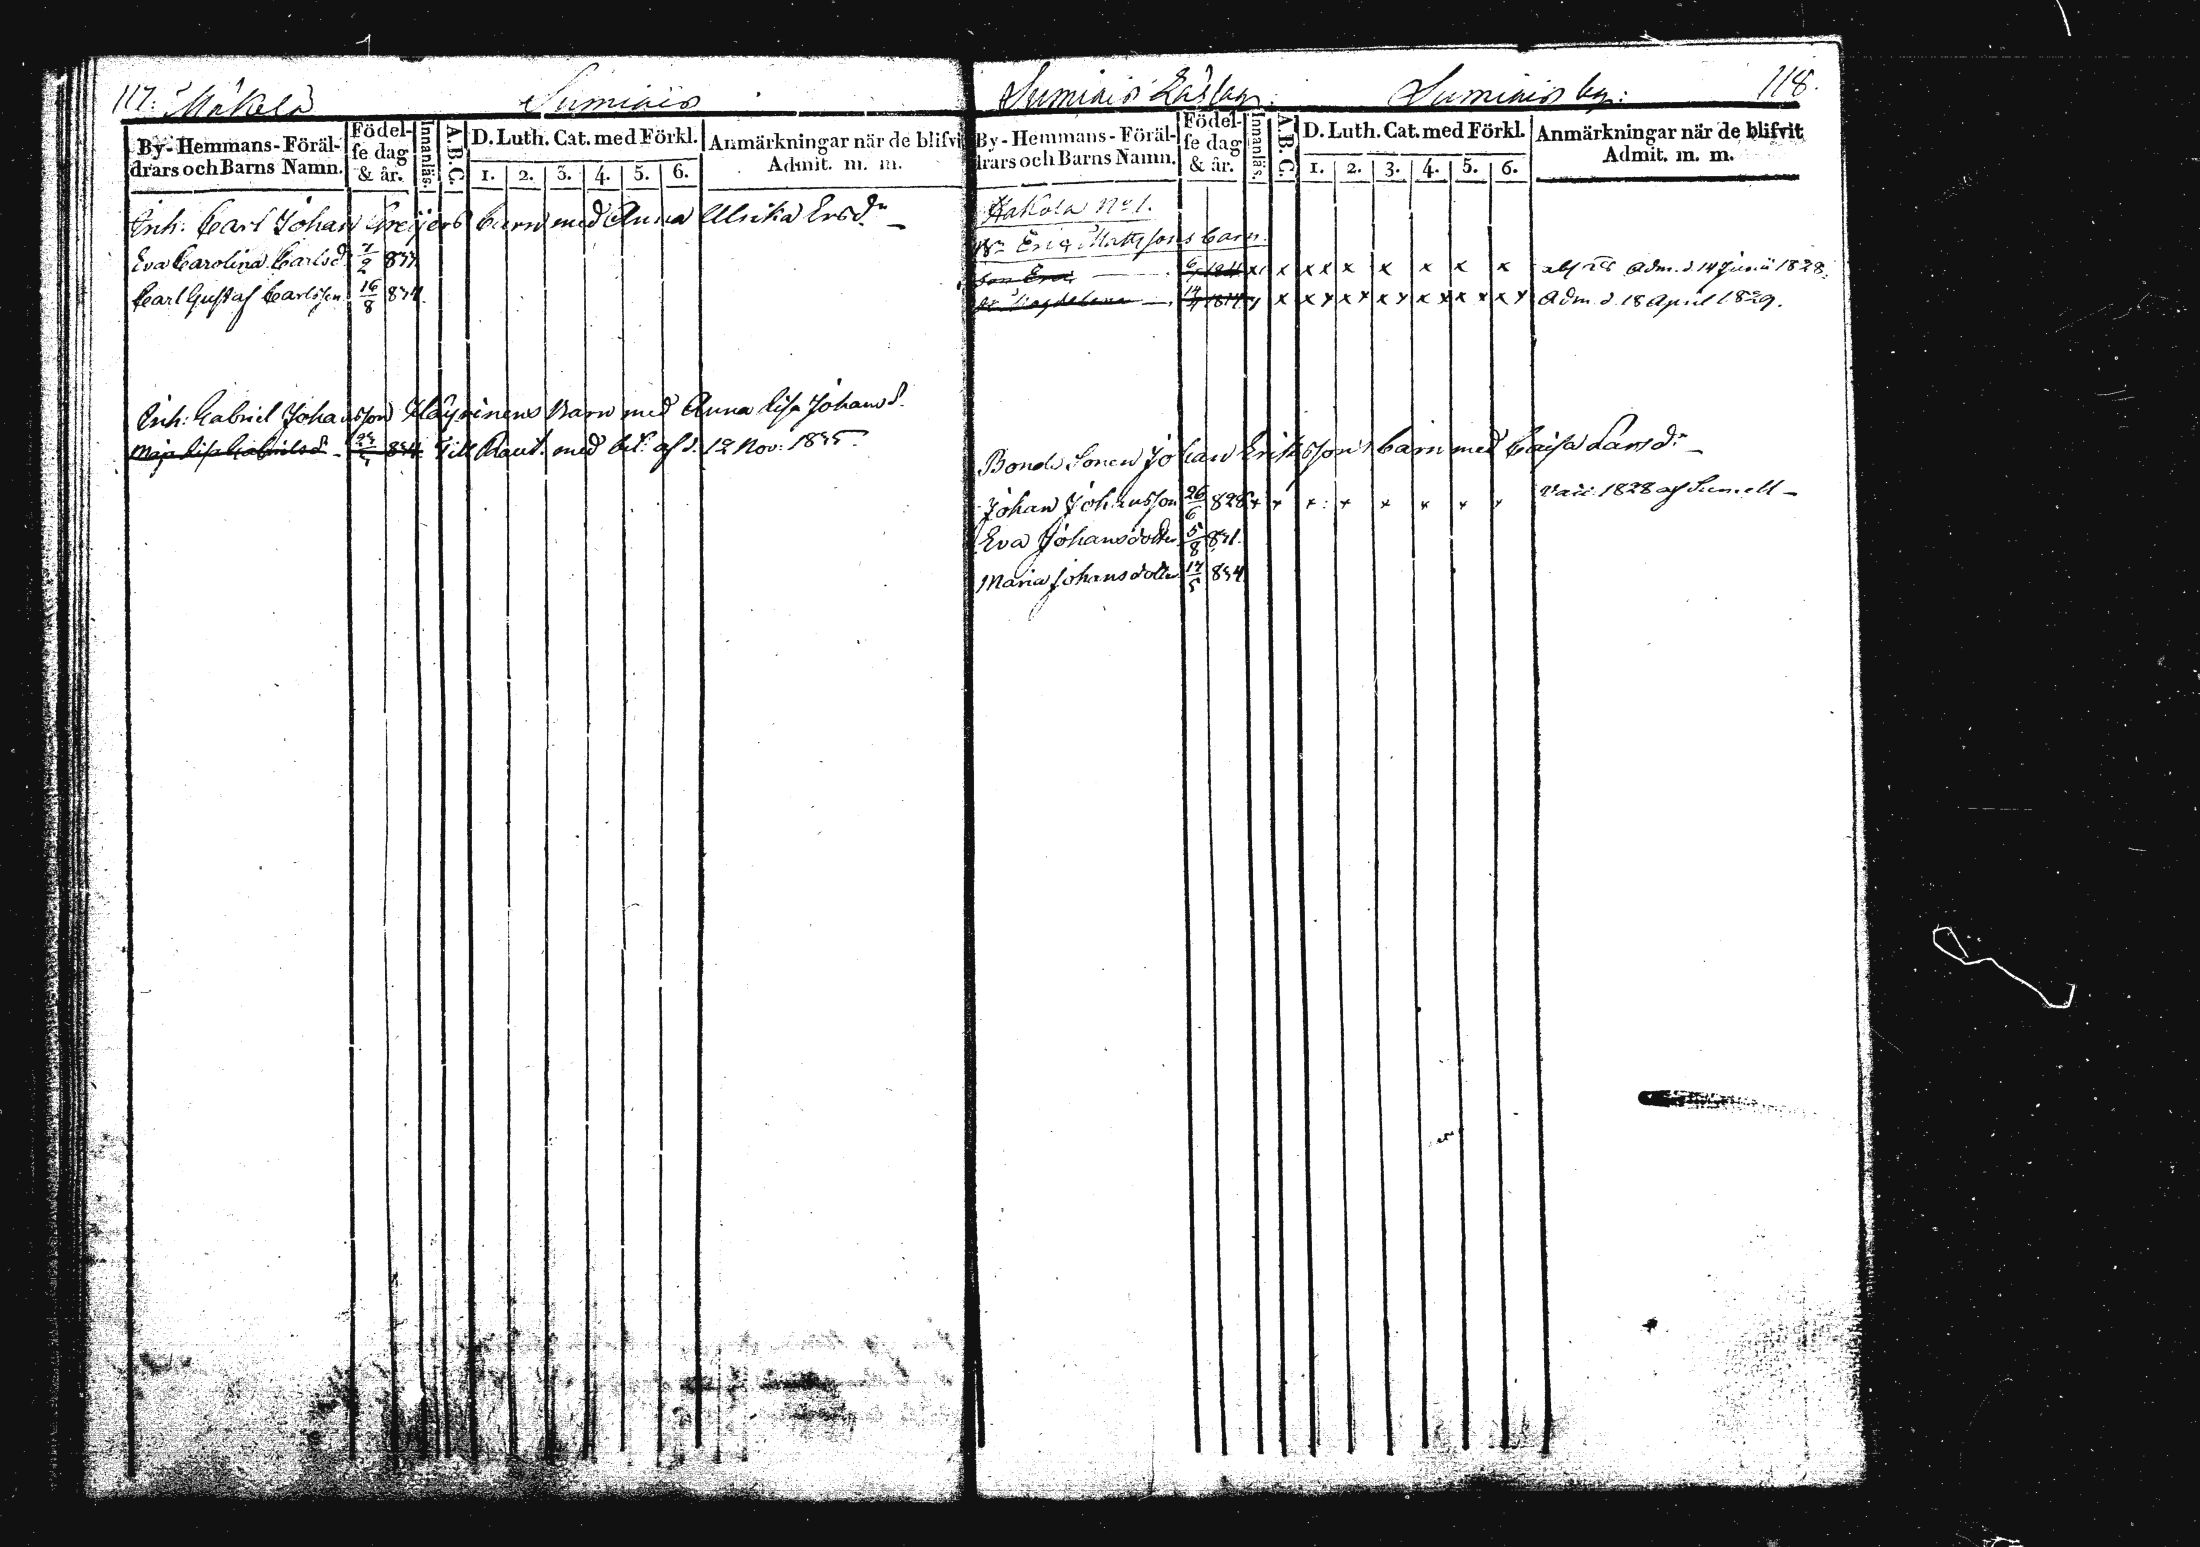 117. Mäkelä Sumiais
By-Hemmans-Föräl-
drars och Barns Namn.
Födel-
se dag
& år.
Innanläs.
A.B.C.
D. Luth. Cat. med Förkl.
1. 2. 3. 4. 5. 6.
Anmärkningar när de blifvit
Admit. m. m.
Inh: Carl Johan Greijers barn med Anna Ulrika Ersdr
Eva Carolina Carlsd. 7/2 833
Carl Gustaf Carlsson 16/8 834.
Inh: Gabriel Johansson Häyrinens Barn med Anna Lisa Johansd.
Maja Lisa Gabrielsd. 834 Till Raut. med bet. af d. 12 Nov: 1835.
Sumiais Läslag: Sumiais by: 118.
By-Hemmans-Föräl-
drars och Barns Namn.
Födel-
se dag
& år.
Innanläs.
A.B.C.
D. Luth. Cat. med Förkl.
1. 2. 3. 4. 5. 6.
Anmärkningar när de blifvit
Admit. m. m.
Hakola No 1.
Bn Eric Mattssons barn
Son Eric x x x x x x x x x Adm. d. 14 Junii 1828.
Magdalena x x x x x x x x x x x x x Adm. d. 18 April 1829.
Bonde Sonen Johan Erikssons barn med Caisa Larsdr
Johan Johansson 26/6 828 x x x x x x x x Vacc. 1828 af
Eva Johansdotter 5/8 831.
Maria Johansdotter 17/5 834